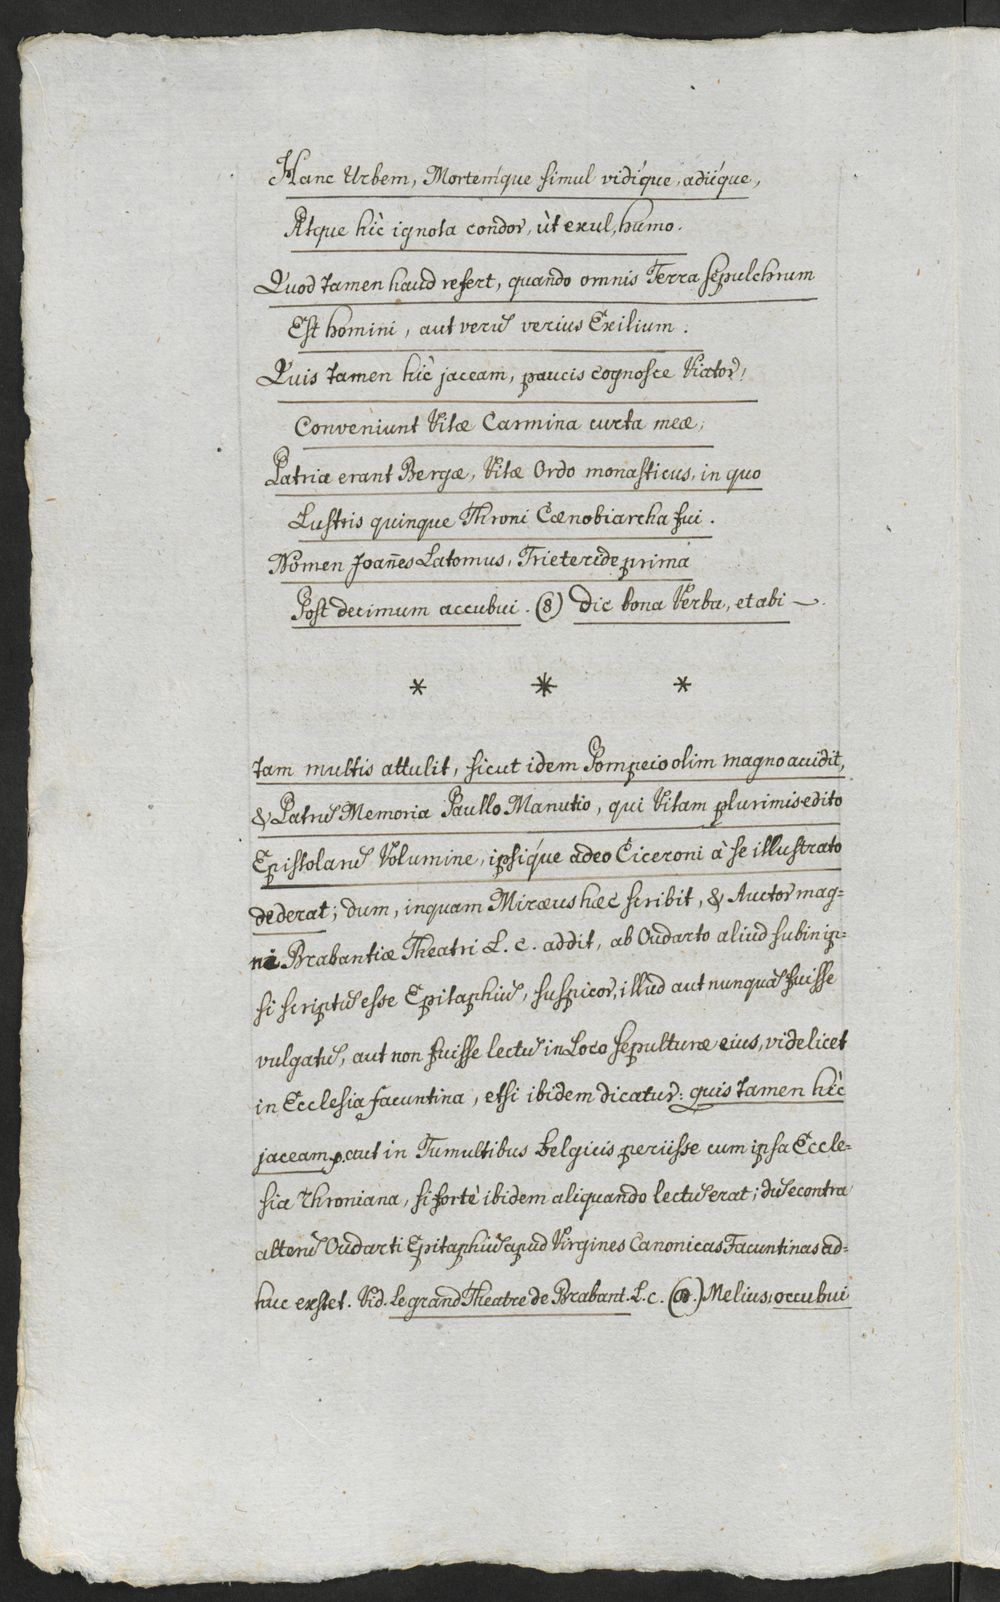 Hanc Urbem, Mortemque simul vidíque, adiíque,
Atque hîc ignota condor, ùt exul, humo.
Quod tamen haud refert, quando omnis Terra sepulchrum
Est homini, aut verũ verius Exilium.
Quis tamen hîc jaceam, paucis cognosce Viator,
Conveniunt Vitæ Carmina curta meæ,
Patria erant Bergæ, Vitæ Ordo monasticus, in quo
Lustris quinque Throni Cœnobiarcha fui.
Nomen Joañes Latomus, Trieteride prima
Post decimum accubui. (8) Dic bona Verba, et abi ~.
* * *
tam multis attulit, sicut idem Pompeio olim magno accidit,
& Patrũ Memoria Paullo Manutio, qui Vitam plurimis edito
Epistolarũ Volumine, ipsíque adeo Ciceroni à se illustrato
dederat; dum, inquam Miræus hæc scribit, & Auctor mag=
ni Brabantiæ Theatri L. c. addit, ab Oudarto aliud subin ip=
si scriptũ esse Epitaphiũ, suspicor, illud aut nunquã fuisse
vulgatũ, aut non fuisse lectũ in Loco sepulturæ eius, videlicet
in Ecclesia facuntina, etsi ibidem dicatur: quis tamen hîc
jaceam p. aut in Tumultibus belgicis periisse cum ipsa Eccle=
sia Throniana, si fortè ibidem aliquando lectũ erat; dũ econtra
alterũ Oudarti Epitaphiũ apud Virgines Canonicas Facuntinas ad=
huc exstet. Vid. Le grand Theatre de Brabant. L. c. (a.) Melius, occubui